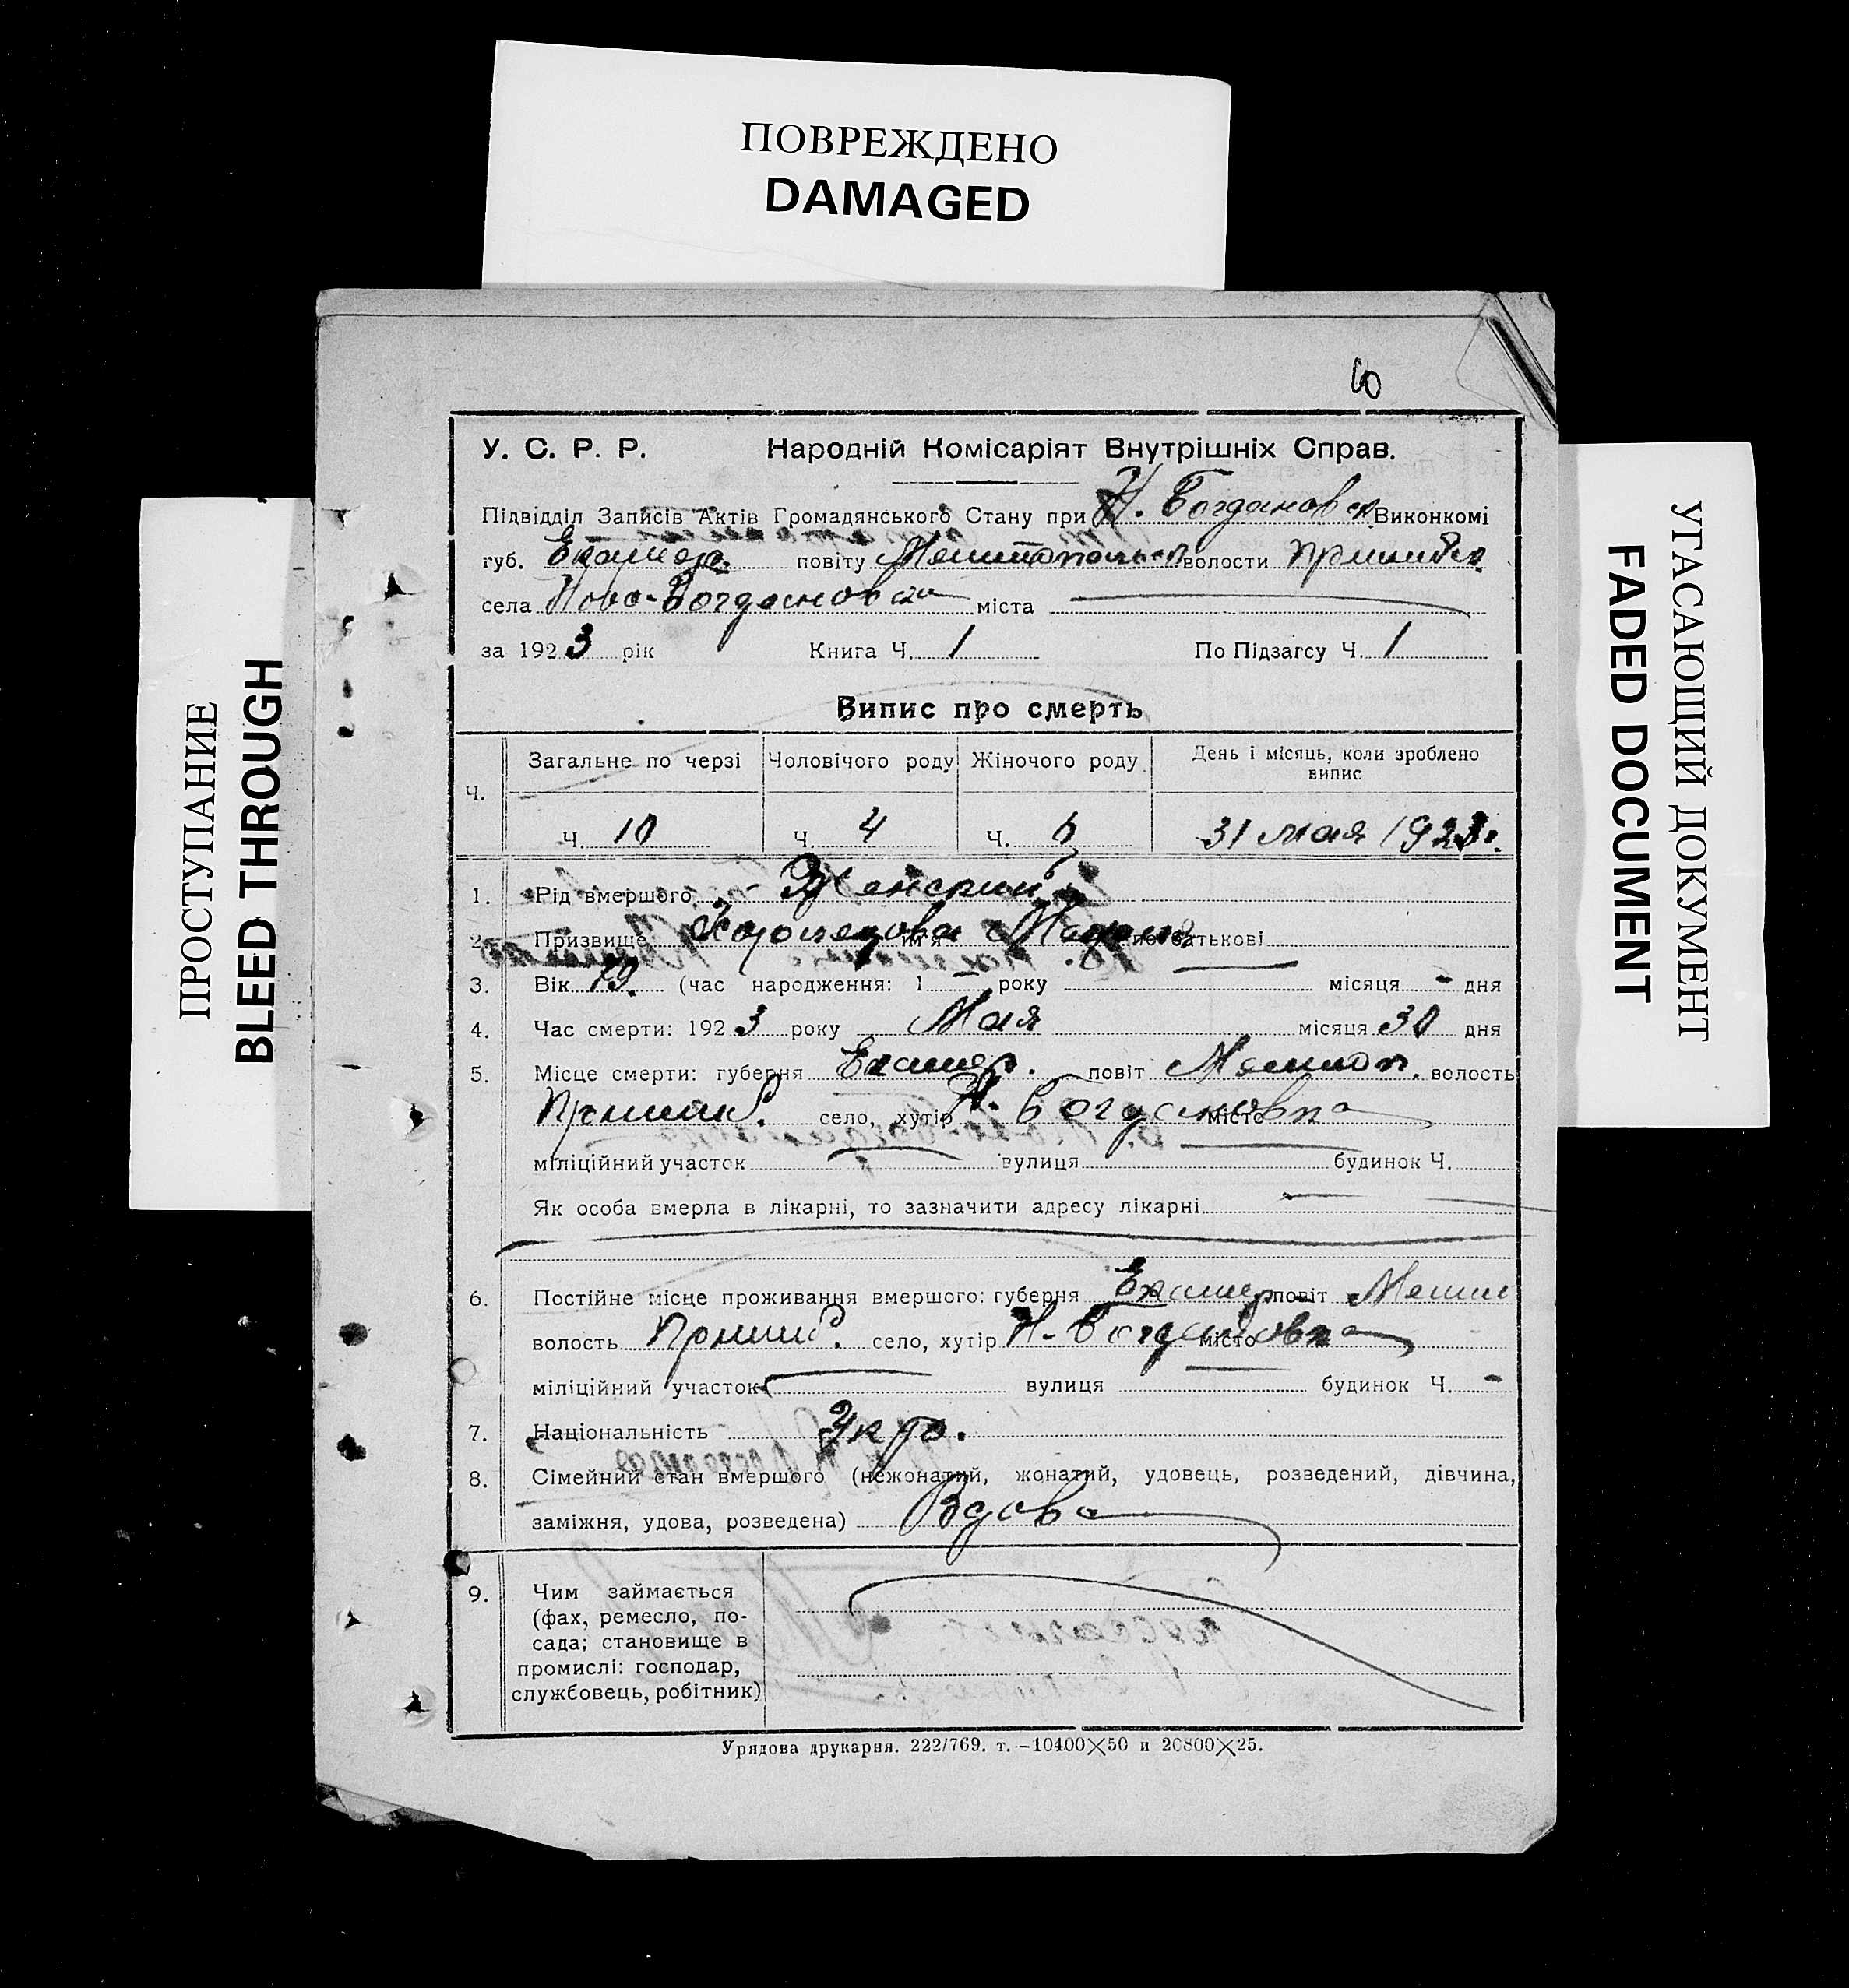 ПОВРЕЖДЕНО
DAMAGED
ПРОСТУПАНИЕ
BLEED THROUGH
УГАСАЮЩИЙ ДОКУМЕНТ
FADED DOCUMENT
10
У. С. Р. Р. Народній Комісаріят Внутрішніх Справ.
Підвідділ Записів Актів Громадянського Стану при Н. Богдановск. Виконкомі
губ. повіту волости
села Ново-Богдановка міста
за 1923 рік Книга Ч. 1 По Підзагсу Ч. 1
Випис про смерть
Ч. Загальне по черзі Чоловічого роду Жіночого роду День і місяць, коли зроблено випис
Ч. 10 Ч. 4 Ч. 6 31 мая 1923 г.
1. Рід вмершого - Женский
2. Призвище им'я по батькові
3. Вік (час народження: 1 — року місяця - дня
4. Час смерти: 1923 року Мая місяця 30 дня
5. Місце смерти: губерня Екатер. повіт Мелитоп. волость
Пришиб. село, хутір Н. Богдановка місто —
міліційний участок — вулиця будинок Ч.
Як особа вмерла в лікарні, то зазначити адресу лікарні —
6. Постійне місце проживання вмершого: губерня Екатер повіт Мелит
волость Пришиб. село, хутір Н. Богдановка місто —
міліційний участок — вулиця будинок Ч. -
7. Національність Укр.
8. Сімейний стан вмершого (нежонатий, жонатий, удовець, розведений, дівчина,
заміжня, удова, розведена) Вдова
9. Чим займається
(фах, ремесло, по-
сада; становище в
промислі: господар,
службовець, робітник)
Урядова друкарня. 222/769. т.—10400×50 и 20800×25.